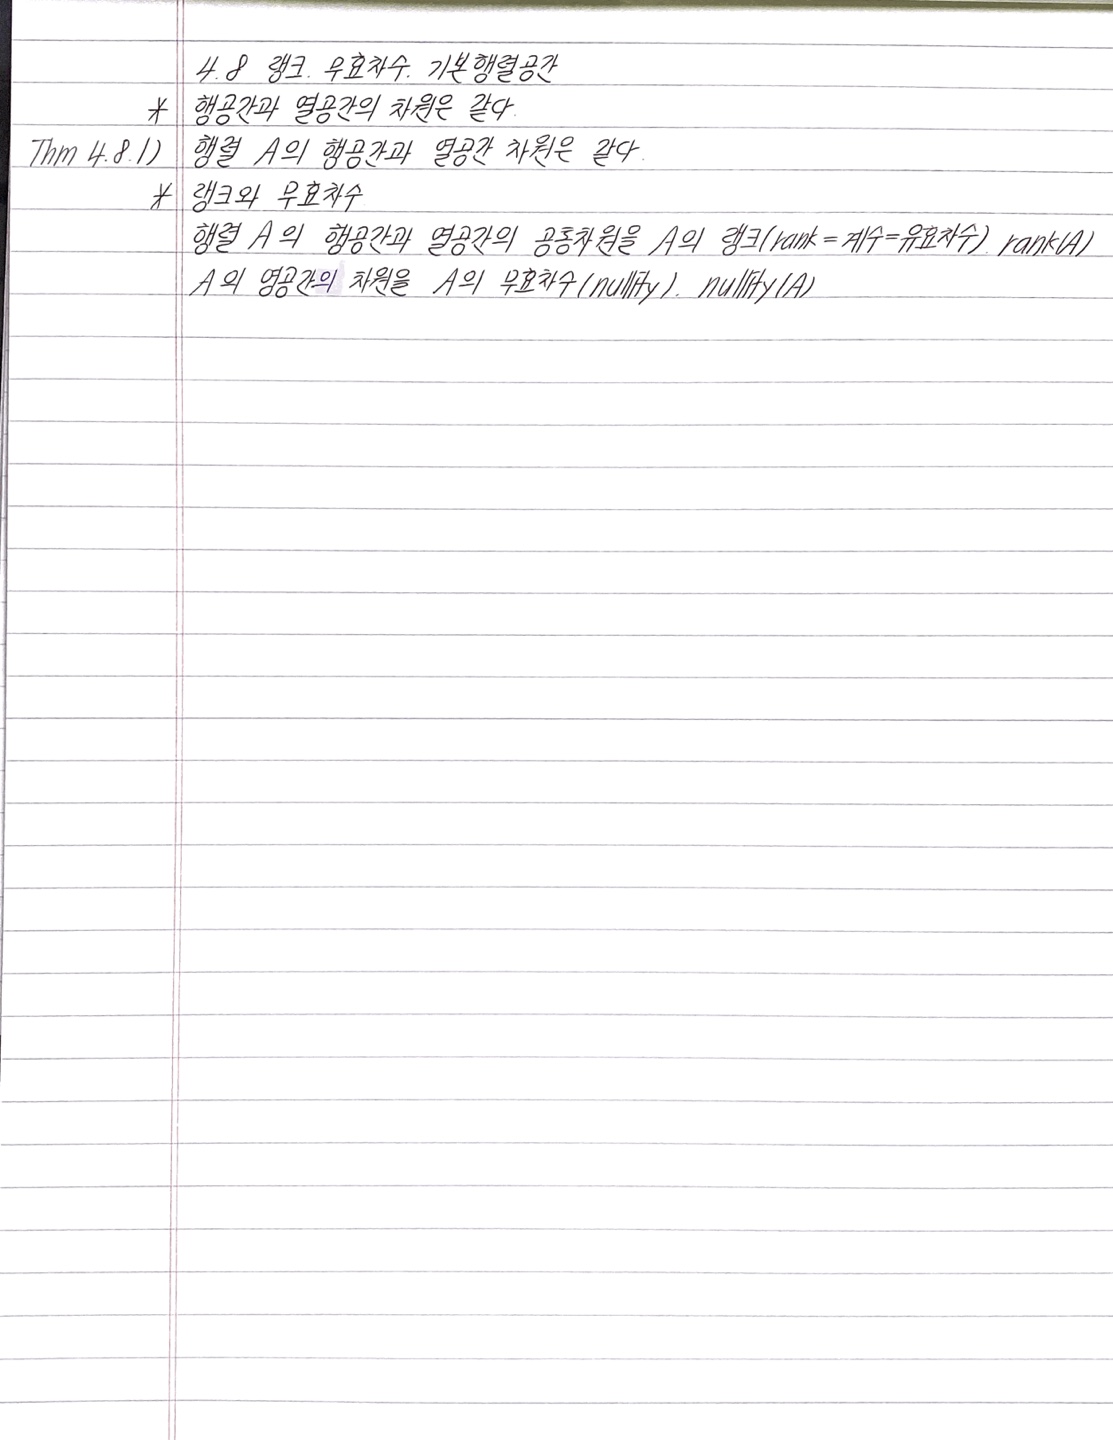 4.8 랭크. 무효차수. 기본행렬공간
* 행공간과 열공간의 차원은 같다.
Thm 4.8.1) 행렬 A의 행공간과 열공간 차원은 같다.
* 랭크와 무효차수
행렬 A의 행공간과 열공간의 공통차원을 A의 랭크(rank=계수=유효차수). rank(A)
A의 영공간의 차원을 A의 무효차수(nullity). nullity(A)